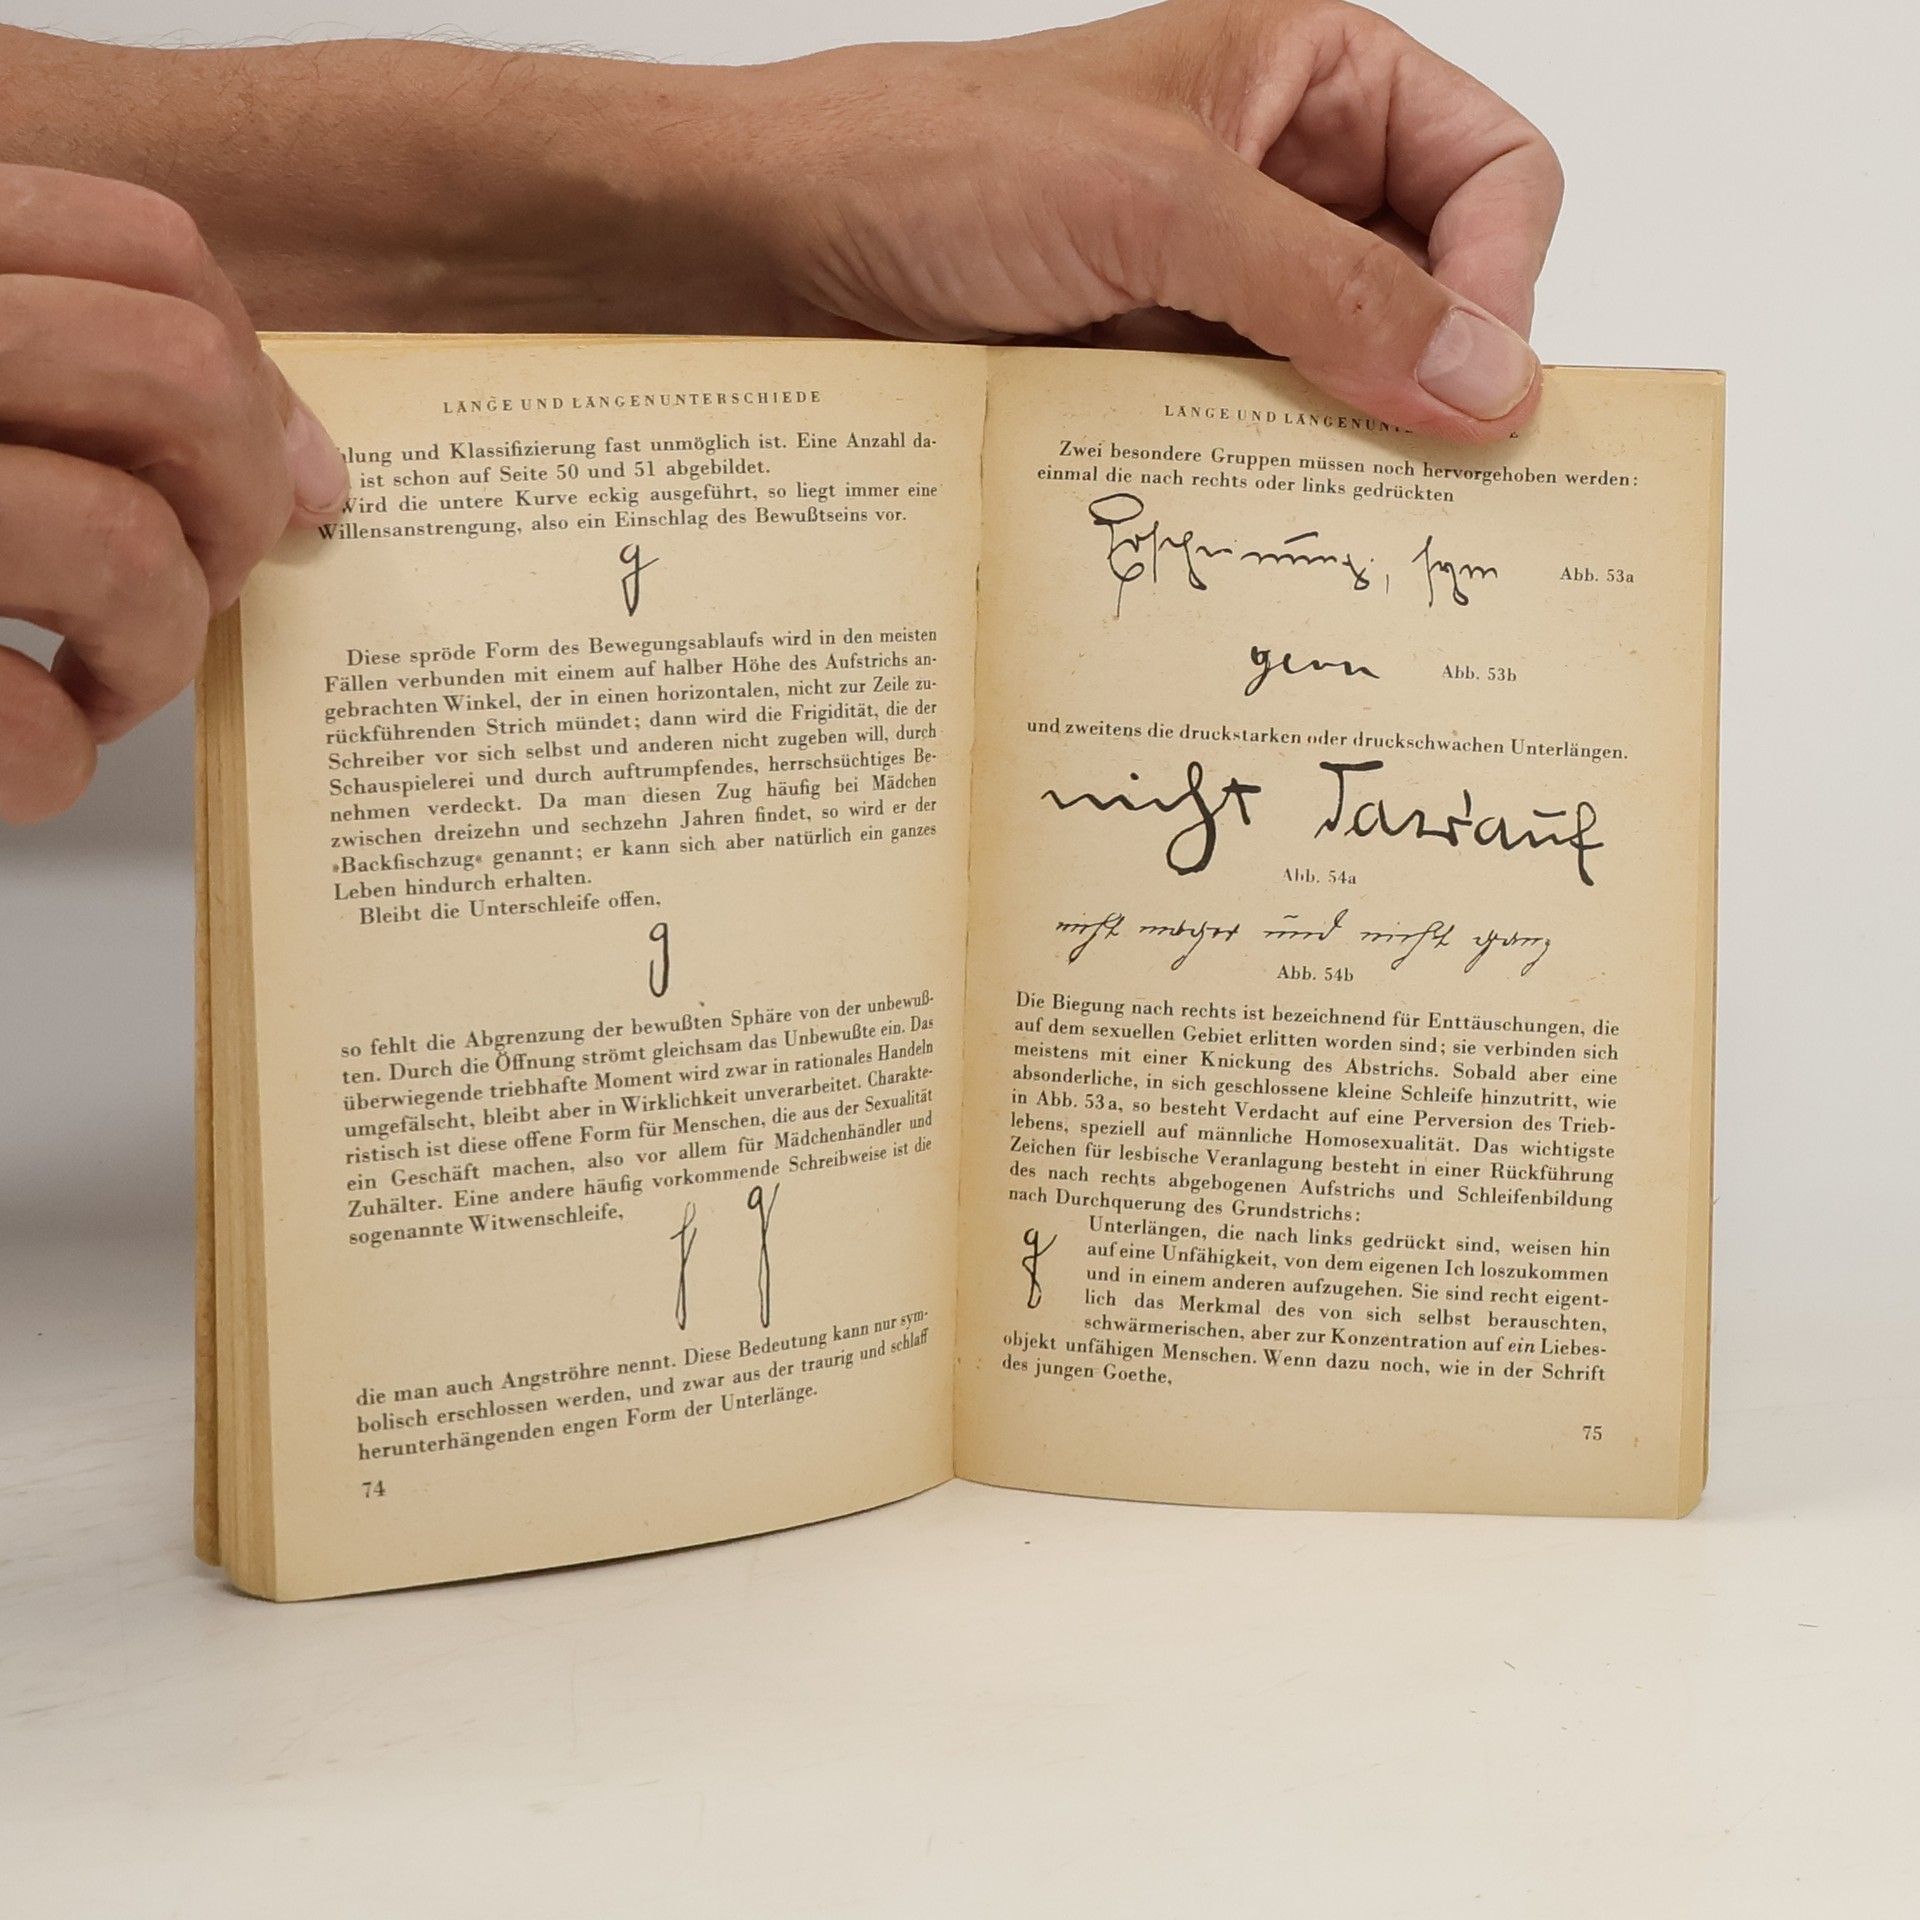 LÄNGE UND LÄNGENUNTERSCHIEDE
und Klassifizierung fast unmöglich ist. Eine Anzahl da-
ist schon auf Seite 50 und 51 abgebildet.
Wird die untere Kurve eckig ausgeführt, so liegt immer eine
Willensanstrengung, also ein Einschlag des Bewußtseins vor.
g
Diese spröde Form des Bewegungsablaufs wird in den meisten
Fällen verbunden mit einem auf halber Höhe des Aufstrichs an-
gebrachten Winkel, der in einen horizontalen, nicht zur Zeile zu-
rückführenden Strich mündet; dann wird die Frigidität, die der
Schreiber vor sich selbst und anderen nicht zugeben will, durch
Schauspielerei und durch auftrumpfendes, herrschsüchtiges Be-
nehmen verdeckt. Da man diesen Zug häufig bei Mädchen
zwischen dreizehn und sechzehn Jahren findet, so wird er der
»Backfischzug« genannt; er kann sich aber natürlich ein ganzes
Leben hindurch erhalten.
Bleibt die Unterschleife offen,
g
so fehlt die Abgrenzung der bewußten Sphäre von der unbewuß-
ten. Durch die Öffnung strömt gleichsam das Unbewußte ein. Das
überwiegende triebhafte Moment wird zwar in rationales Handeln
umgefälscht, bleibt aber in Wirklichkeit unverarbeitet. Charakte-
ristisch ist diese offene Form für Menschen, die aus der Sexualität
ein Geschäft machen, also vor allem für Mädchenhändler und
Zuhälter. Eine andere häufig vorkommende Schreibweise ist die
sogenannte Witwenschleife,
f g
die man auch Angströhre nennt. Diese Bedeutung kann nur sym-
bolisch erschlossen werden, und zwar aus der traurig und schlaff
herunterhängenden engen Form der Unterlänge.
74
LÄNGE UND LÄNGENUNT
Zwei besondere Gruppen müssen noch hervorgehoben werden:
einmal die nach rechts oder links gedrückten
Abb. 53a
gern Abb. 53b
und zweitens die druckstarken oder druckschwachen Unterlängen.
nicht darauf
Abb. 54a
nicht und nicht ganz
Abb. 54b
Die Biegung nach rechts ist bezeichnend für Enttäuschungen, die
auf dem sexuellen Gebiet erlitten worden sind; sie verbinden sich
meistens mit einer Knickung des Abstrichs. Sobald aber eine
absonderliche, in sich geschlossene kleine Schleife hinzutritt, wie
in Abb. 53a, so besteht Verdacht auf eine Perversion des Trieb-
lebens, speziell auf männliche Homosexualität. Das wichtigste
Zeichen für lesbische Veranlagung besteht in einer Rückführung
des nach rechts abgebogenen Aufstrichs und Schleifenbildung
nach Durchquerung des Grundstrichs:
g
Unterlängen, die nach links gedrückt sind, weisen hin
auf eine Unfähigkeit, von dem eigenen Ich loszukommen
und in einem anderen aufzugehen. Sie sind recht eigent-
lich das Merkmal des von sich selbst berauschten,
schwärmerischen, aber zur Konzentration auf ein Liebes-
objekt unfähigen Menschen. Wenn dazu noch, wie in der Schrift
des jungen Goethe,
75